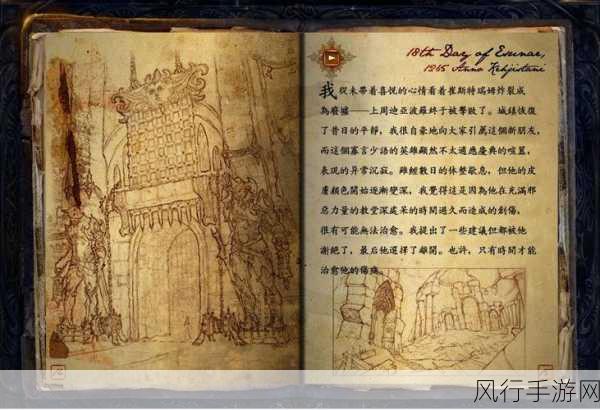 18th Day of Esunar,
1265 Anno Kehjistani
我從未帶着喜悅的心情看着崔斯特瑞姆炸裂成
為廢墟——上周迪亞波羅終于被擊敗了。城鎮恢復
了昔日的平靜,我很自豪地向大家引薦這個新朋友,
而這個寡言少語的英雄顯然不太適應慶典的喧囂,
表現的异常沉寂。雖經數日的休整歇息,但他的皮
膚顏色開始逐漸變深,我覺得這是因為他在充滿邪
惡力量的教堂深處呆的時間過久而造成的創傷,
很有可能無法治愈。我提出了一些建議但都被他
謝絕了,最后他選擇了離開。也許,只有時間才能
治愈他的傷痛。
风行手游网